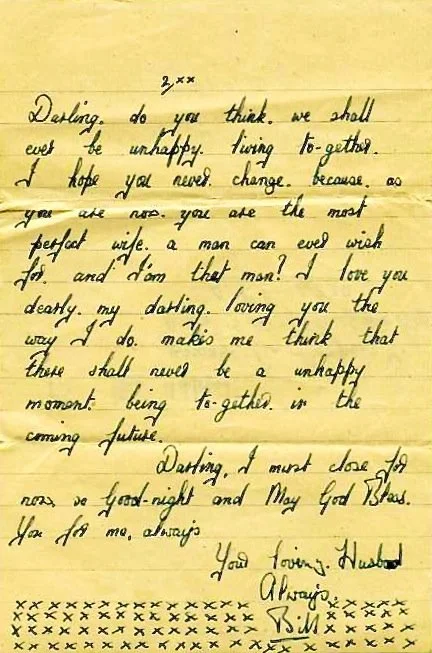 2, xx
Darling. do you think. we shall
ever be unhappy. living to-gether.
I hope you never. change. because. as
you are now. you are the most
perfect wife. a man can ever wish
for. and I'am that man? I love you
dearly. my darling. loving you the
way I do. makes me think that
there shall never be a unhappy
moment. being to-gether. in the
coming future.
Darling, I must close for
now, so Good-night and May God Bless.
You for me, always
Your loving. Husband
Always.
Bill
x x x x x x x x x x x x x x x x x x x x x x x
x x x x x x x x x x x x x x x x x x x x x x x
x x x x x x x x x x x x x x x x x x x x x x x
x x x x x x x x x x x x x x x x x x x x x x x